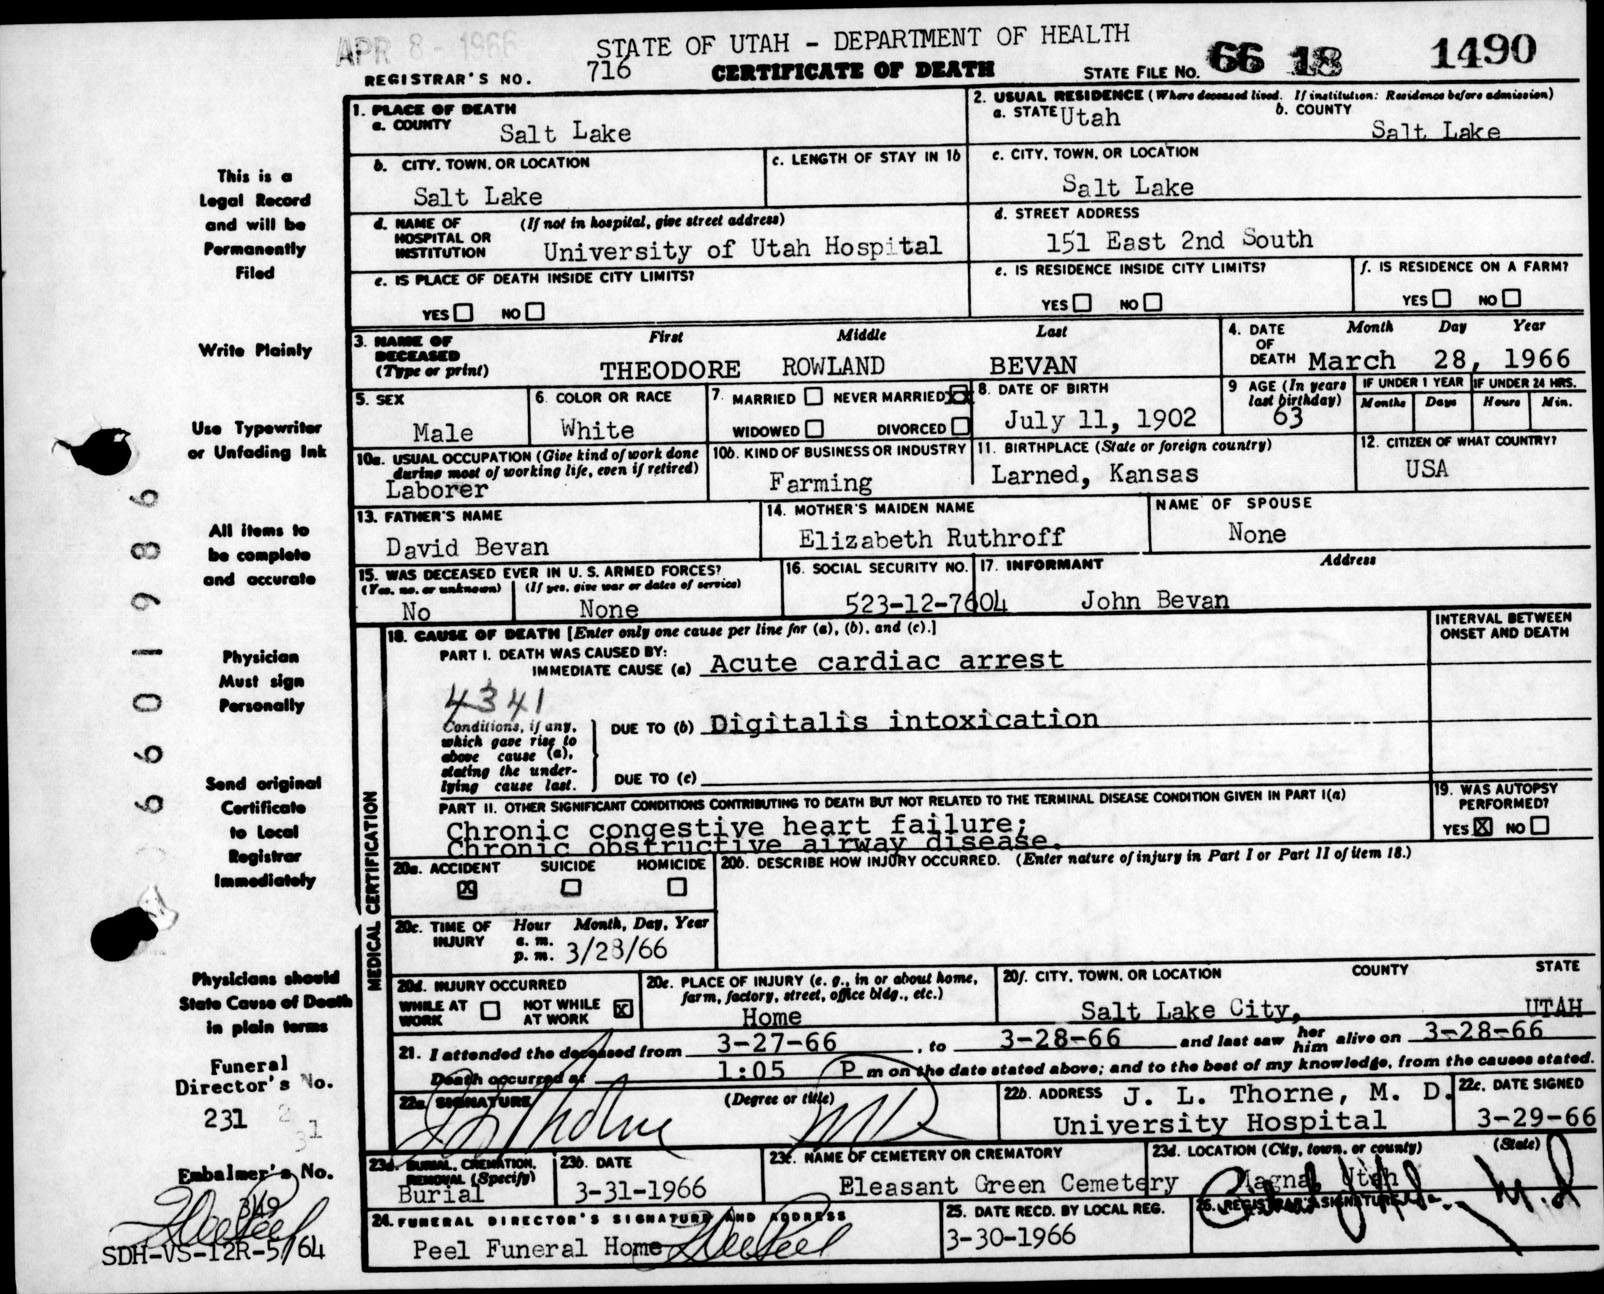 APR 8 - 1966
STATE OF UTAH - DEPARTMENT OF HEALTH
REGISTRAR'S NO. 716 CERTIFICATE OF DEATH STATE FILE NO. 66 18 1490
1. PLACE OF DEATH
a. COUNTY Salt Lake
2. USUAL RESIDENCE (Where deceased lived. If institution: Residence before admission)
a. STATE Utah b. COUNTY Salt Lake
b. CITY, TOWN, OR LOCATION
Salt Lake
c. LENGTH OF STAY IN 1b
c. CITY, TOWN, OR LOCATION
Salt Lake
d. NAME OF HOSPITAL OR INSTITUTION (If not in hospital, give street address)
University of Utah Hospital
d. STREET ADDRESS
151 East 2nd South
e. IS PLACE OF DEATH INSIDE CITY LIMITS?
YES NO
e. IS RESIDENCE INSIDE CITY LIMITS?
YES NO
f. IS RESIDENCE ON A FARM?
YES NO
3. NAME OF DECEASED (Type or print)
First Middle Last
THEODORE ROWLAND BEVAN
4. DATE OF DEATH Month Day Year
March 28, 1966
5. SEX
Male
6. COLOR OR RACE
White
7. MARRIED NEVER MARRIED X
WIDOWED DIVORCED
8. DATE OF BIRTH
July 11, 1902
9 AGE (In years last birthday)
63
IF UNDER 1 YEAR
Months Days
IF UNDER 24 HRS.
Hours Min.
10a. USUAL OCCUPATION (Give kind of work done during most of working life, even if retired)
Laborer
10b. KIND OF BUSINESS OR INDUSTRY
Farming
11. BIRTHPLACE (State or foreign country)
Larned, Kansas
12. CITIZEN OF WHAT COUNTRY?
USA
13. FATHER'S NAME
David Bevan
14. MOTHER'S MAIDEN NAME
Elizabeth Ruthroff
NAME OF SPOUSE
None
15. WAS DECEASED EVER IN U. S. ARMED FORCES?
(Yes, no, or unknown) (If yes, give war or dates of service)
No None
16. SOCIAL SECURITY NO.
523-12-7604
17. INFORMANT Address
John Bevan
MEDICAL CERTIFICATION
18. CAUSE OF DEATH [Enter only one cause per line for (a), (b), and (c).]
INTERVAL BETWEEN ONSET AND DEATH
PART I. DEATH WAS CAUSED BY:
IMMEDIATE CAUSE (a) Acute cardiac arrest
4341
Conditions, if any, which gave rise to above cause (a), stating the underlying cause last.
DUE TO (b) Digitalis intoxication
DUE TO (c)
PART II. OTHER SIGNIFICANT CONDITIONS CONTRIBUTING TO DEATH BUT NOT RELATED TO THE TERMINAL DISEASE CONDITION GIVEN IN PART I(a)
Chronic congestive heart failure;
Chronic obstructive airway disease.
19. WAS AUTOPSY PERFORMED?
YES X NO
20a. ACCIDENT SUICIDE HOMICIDE
X
20b. DESCRIBE HOW INJURY OCCURRED. (Enter nature of injury in Part I or Part II of item 18.)
20c. TIME OF INJURY Hour Month, Day, Year
a. m.
p. m. 3/28/66
20d. INJURY OCCURRED
WHILE AT WORK NOT WHILE AT WORK X
20e. PLACE OF INJURY (e. g., in or about home, farm, factory, street, office bldg., etc.)
Home
20f. CITY, TOWN, OR LOCATION COUNTY STATE
Salt Lake City, UTAH
21. I attended the deceased from 3-27-66, to 3-28-66 and last saw her him alive on 3-28-66
Death occurred at 1:05 P m on the date stated above; and to the best of my knowledge, from the causes stated.
22a. SIGNATURE (Degree or title)
J L Thorne MD
22b. ADDRESS J. L. Thorne, M. D.
University Hospital
22c. DATE SIGNED
3-29-66
23a. BURIAL, CREMATION, REMOVAL (Specify)
Burial
23b. DATE
3-31-1966
23c. NAME OF CEMETERY OR CREMATORY
Pleasant Green Cemetery
23d. LOCATION (City, town, or county) (State)
Magna, Utah
24. FUNERAL DIRECTOR'S SIGNATURE AND ADDRESS
Peel Funeral Home
25. DATE RECD. BY LOCAL REG.
3-30-1966
26. REGISTRAR'S SIGNATURE
M.D
This is a
Legal Record
and will be
Permanently
Filed
Write Plainly
Use Typewriter
or Unfading Ink
All items to
be complete
and accurate
Physician
Must sign
Personally
Send original
Certificate
to Local
Registrar
Immediately
Physicians should
State Cause of Death
in plain terms
Funeral
Director's No.
231
2
31
Embalmer's No.
349
SDH-VS-12R-5/64
660198 6